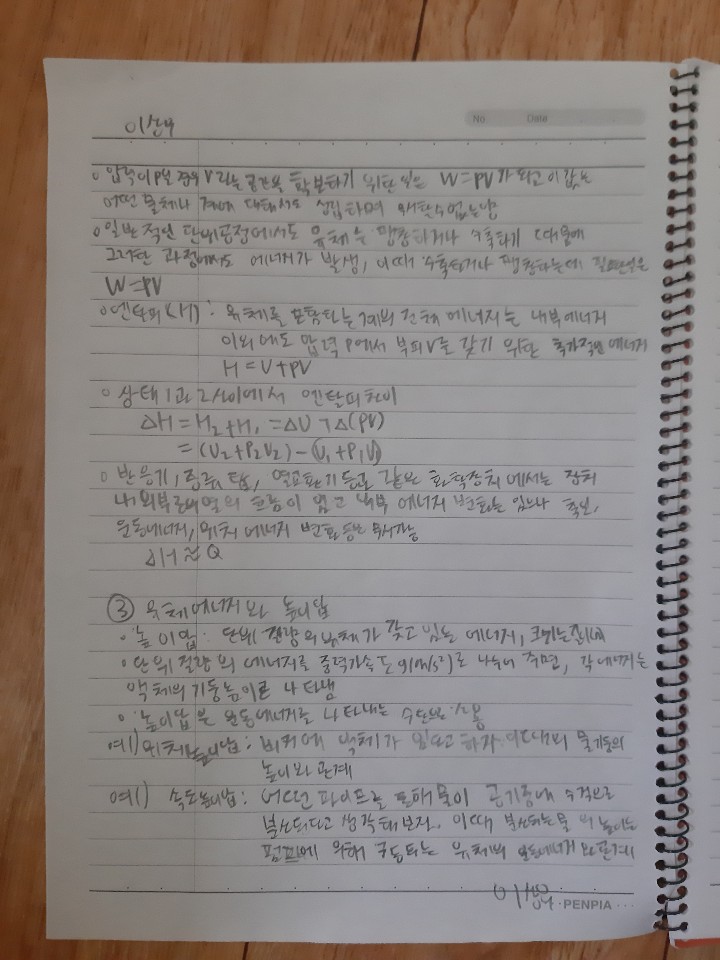 No. Date
○ 압력이 P일 경우 V라는 공간을 확보하기 위한 일은 W=PV가 되고 이 값은
어떤 물체나 상태에서도 성립하며 무시할 수 없는 양
○ 일반적인 단위공정에서도 유체는 팽창하거나 수축하기 때문에
그러한 과정에서도 에너지가 발생, 이때 수축하거나 팽창하는데 필요한 일은
W=PV
○ 엔탈피(H) : 유체를 포함하는 계의 전체 에너지는 내부에너지
이외에도 압력 P에서 부피 V를 갖기 위한 추가적인 에너지
H = U+PV
○ 상태 1과 2사이에서 엔탈피 차이
ΔH = H₂+H₁ = ΔU + Δ(PV)
= (U₂+P₂V₂)-(U₁+P₁V₁)
○ 반응기, 증류탑, 열교환기 등과 같은 화학장치에서는 장치
내외부로의 열의 흐름이 있고 내부 에너지 변화는 있으나 축일,
운동에너지, 위치에너지 변화 등은 무시가능
ΔH ≈ Q
③ 유체에너지와 높이답
· 높이답 : 단위 질량의 유체가 갖고 있는 에너지, 크기는 길이
· 단위 질량의 에너지를 중력가속도 g(m/s²)로 나누어 주면, 각 에너지는
액체의 기둥높이로 나타냄
· 높이답은 운동에너지를 나타내는 수단으로 사용
예) 위치높이답 : 비커에 액체가 있다고 하자 이때의 물기둥의
높이와 관계
예) 속도높이답 : 어떤 파이프를 통해 물이 공기중에 수직으로
분산된다고 생각해보자. 이때 분산되는 물의 높이는
펌프에 의해 구동되는 유체의 운동에너지와 관계
PENPIA